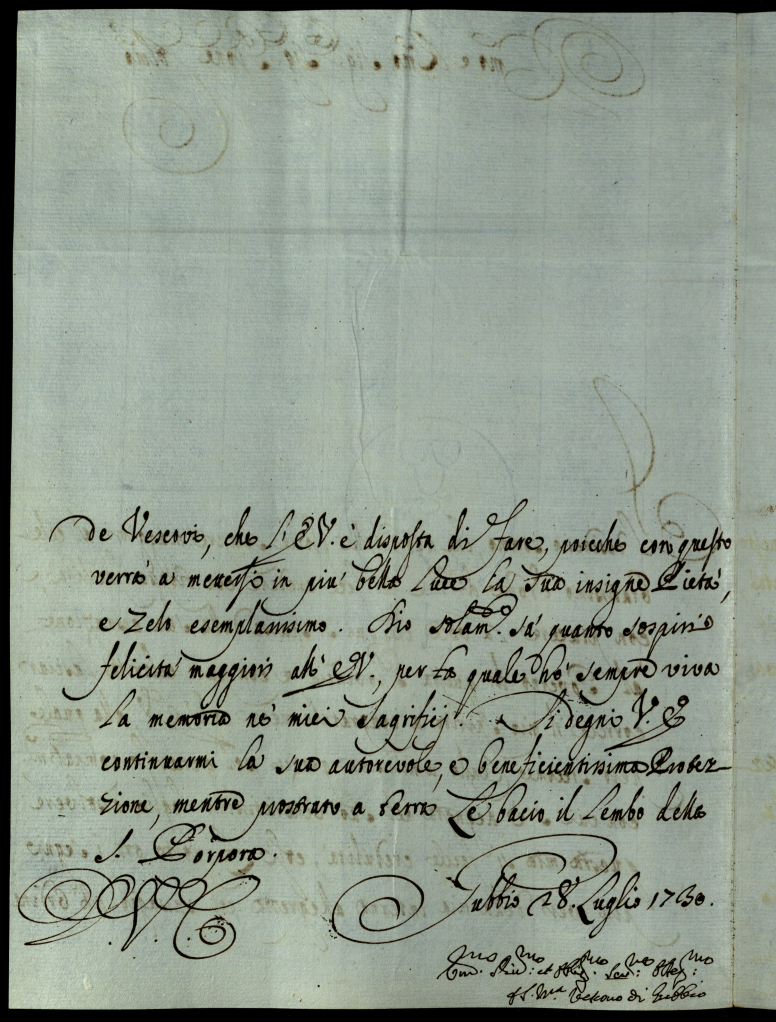 de Vescovi, che l'E.V. è disposta di fare, poiche con questo
verrà a mettersi in piu' bella luce la sua insigne Pietà,
e Zelo esemplarissimo. Dio solam.te sà quanto sospiri
felicità maggiori all' E.V., per la quale hò sempre viva
la memoria ne' miei Sagrifici. Si degni V. E.
continuarmi la sua autorevole, e beneficientissima Protez-
zione, mentre prostrato a terra Le bacio il lembo della
S. Porpora.
Gubbio 28 Luglio 1730.
D. V. E.
Um.mo Div.mo et Obblig.mo Ser.vo Obbg.mo
f. S. M.a Vescovo di Gubbio